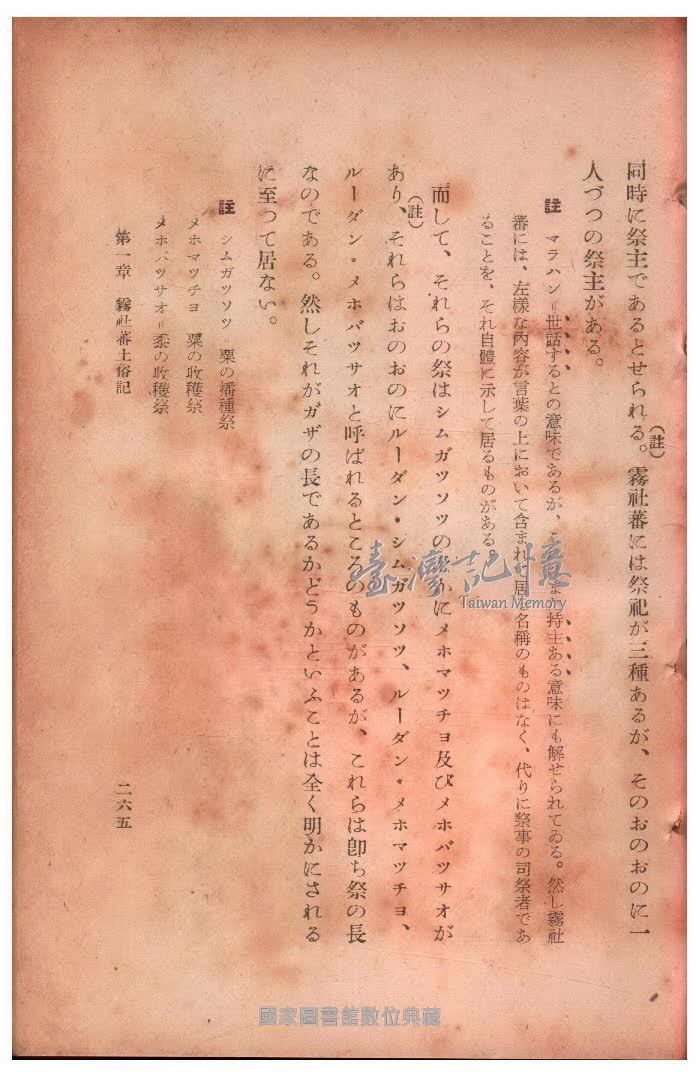 同時に祭主であるとせられる。(註)霧社蕃には祭祀が三種あるが、そのおのおのに一
人づつの祭主がある。
註 マラハン=世話するとの意味であるが、また持主ある意味にも解せられてゐる。然し霧社
蕃には、左様な內容が言葉の上において含まれて居名稱のものはなく、代りに祭事の司祭者であ
ることを、それ自體に示して居るものがある。
而して、それらの祭はシムガツソツのにメホマツチヨ及びメホバツサオが
あり、(註)それらはおのおのにルーダン・シムガツソツ、ルーダン・メホマツチヨ、
ルーダン・メホバツサオと呼ばれるところのものがあるが、これらは卽ち祭の長
なのである。然しそれがガザの長であるかどうかといふことは全く明かにされる
に至つて居ない。
註 シムガツソツ=粟の播種祭
メホマツチヨ 粟の收穫祭
メホバツサオ=黍の收穫祭
第一章 霧社蕃土俗記
二六五
臺灣記憶
Taiwan Memory
國家圖書館數位典藏